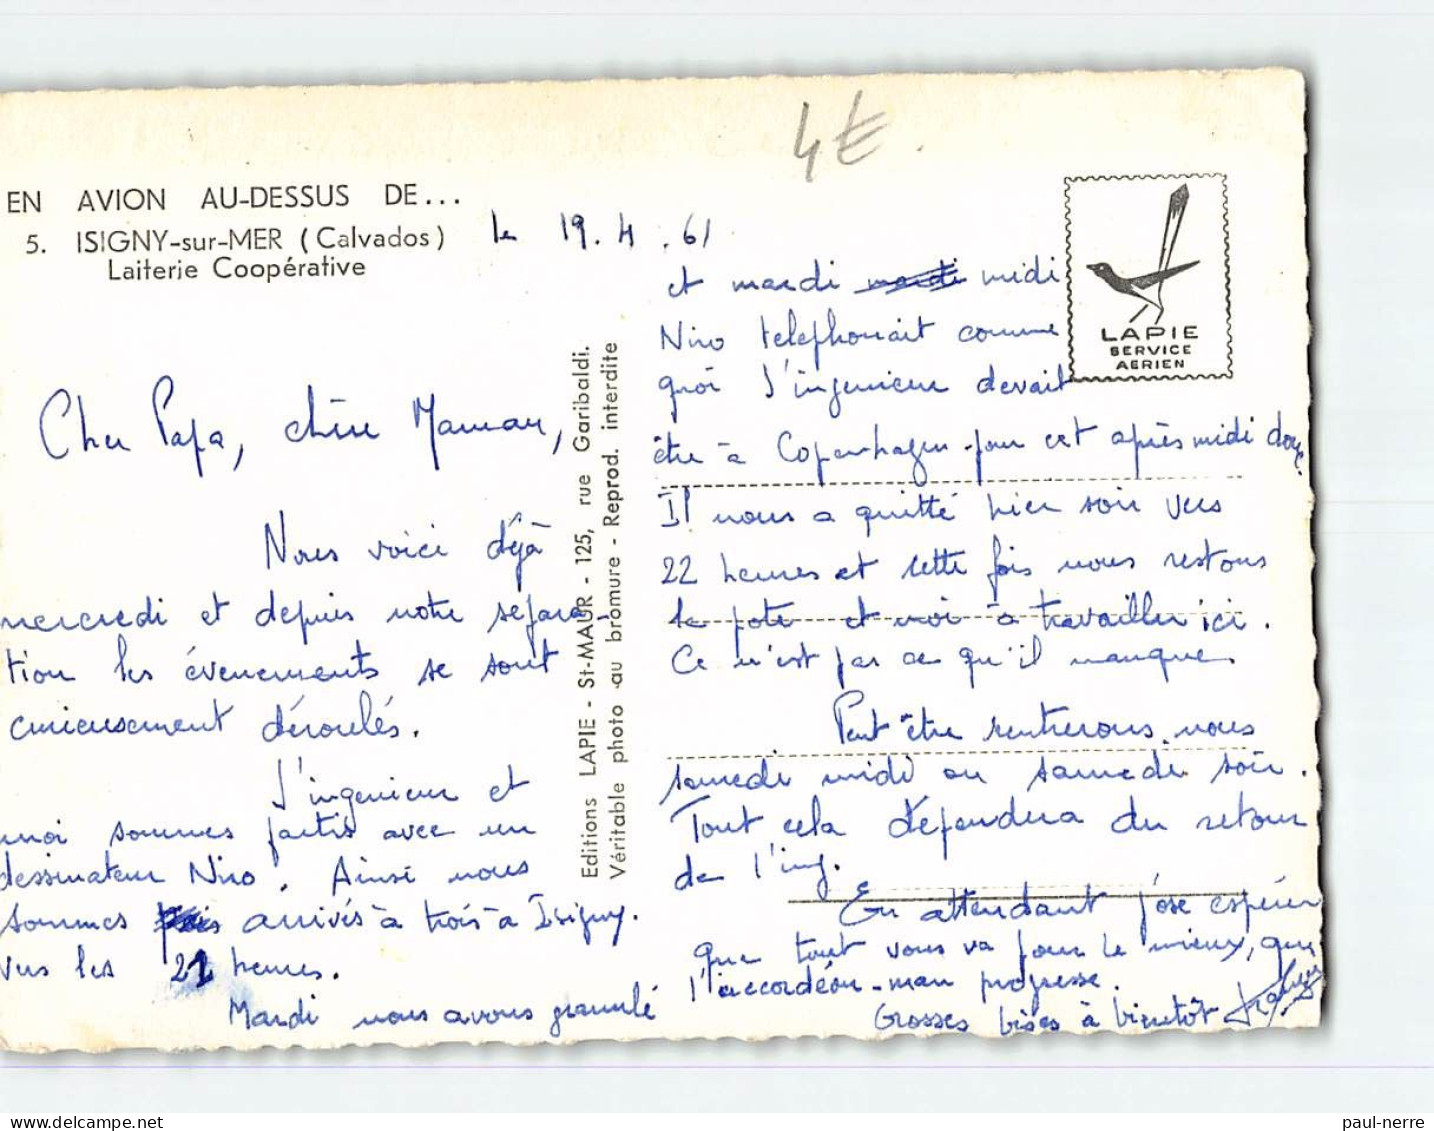 4€.
EN AVION AU-DESSUS DE...
5. ISIGNY-sur-MER (Calvados)
Laiterie Coopérative
le 19.4.61
Cher Papa, chère Maman,
Nous voici déjà
mercredi et depuis notre sépara
tion les évenements se sont
curieusement déroulés.
L'ingenieur et
moi sommes partis avec un
dessinateur Niro. Ainsi nous
sommes arrivés à trois à Isigny.
vers les 21 heures.
Mardi nous avons granulé
Editions LAPIE - St-MAUR - 125, rue Garibaldi.
Véritable photo au bromure - Reprod. interdite
et mardi midi
Niro telephonait comme
quoi l'ingenieur devait
être à Copenhagen pour cet après midi donc.
Il nous a quitté hier soir vers
22 heures et cette fois nous restons
le pote et moi à travailler ici.
Ce n'est pas ce qu'il manque
Peut être rentrerons nous
samedi midi ou samedi soir.
Tout cela dépendra du retour
de l'ing.
En attendant j'ose espérer
que tout vous va pour le mieux, que
l'accordéon-man progresse.
Grosses bises à bientôt
LAPIE
SERVICE
AERIEN
paul-nerre